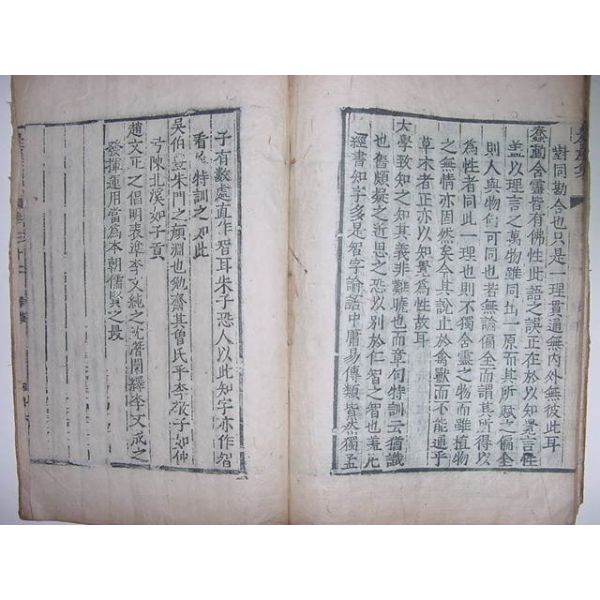 對同勘合也只是一理貫通無內外無彼此耳
蠢動含靈皆有佛性此語之誤正在於以知覺言性
蓋以理言之萬物雖同出一原而其所賦之偏全
則人與物自可同也若無論偏全而謂其所得以
為性者同此一理也則不獨含靈之物而雖植物
之無情亦固然矣今其說止於禽獸而不能通乎
草木者正亦以知覺為性故耳
大學致知之知其義非難曉也而章句特訓云猶識
也舊頗疑之近思之恐以別於仁智之智也蓋凡
經書知字多是智字論語中庸易傳類皆然獨孟
子有數處直作智耳朱子恐人以此知字亦作智
看特訓之如此
吳伯朱門之顏淵也勉齋其曾氏乎李敬子如仲
弓陳北溪如子貢
趙文正之倡明表準李文純之沈著闡繹李文成之
發揮運用當為本朝儒賢之最